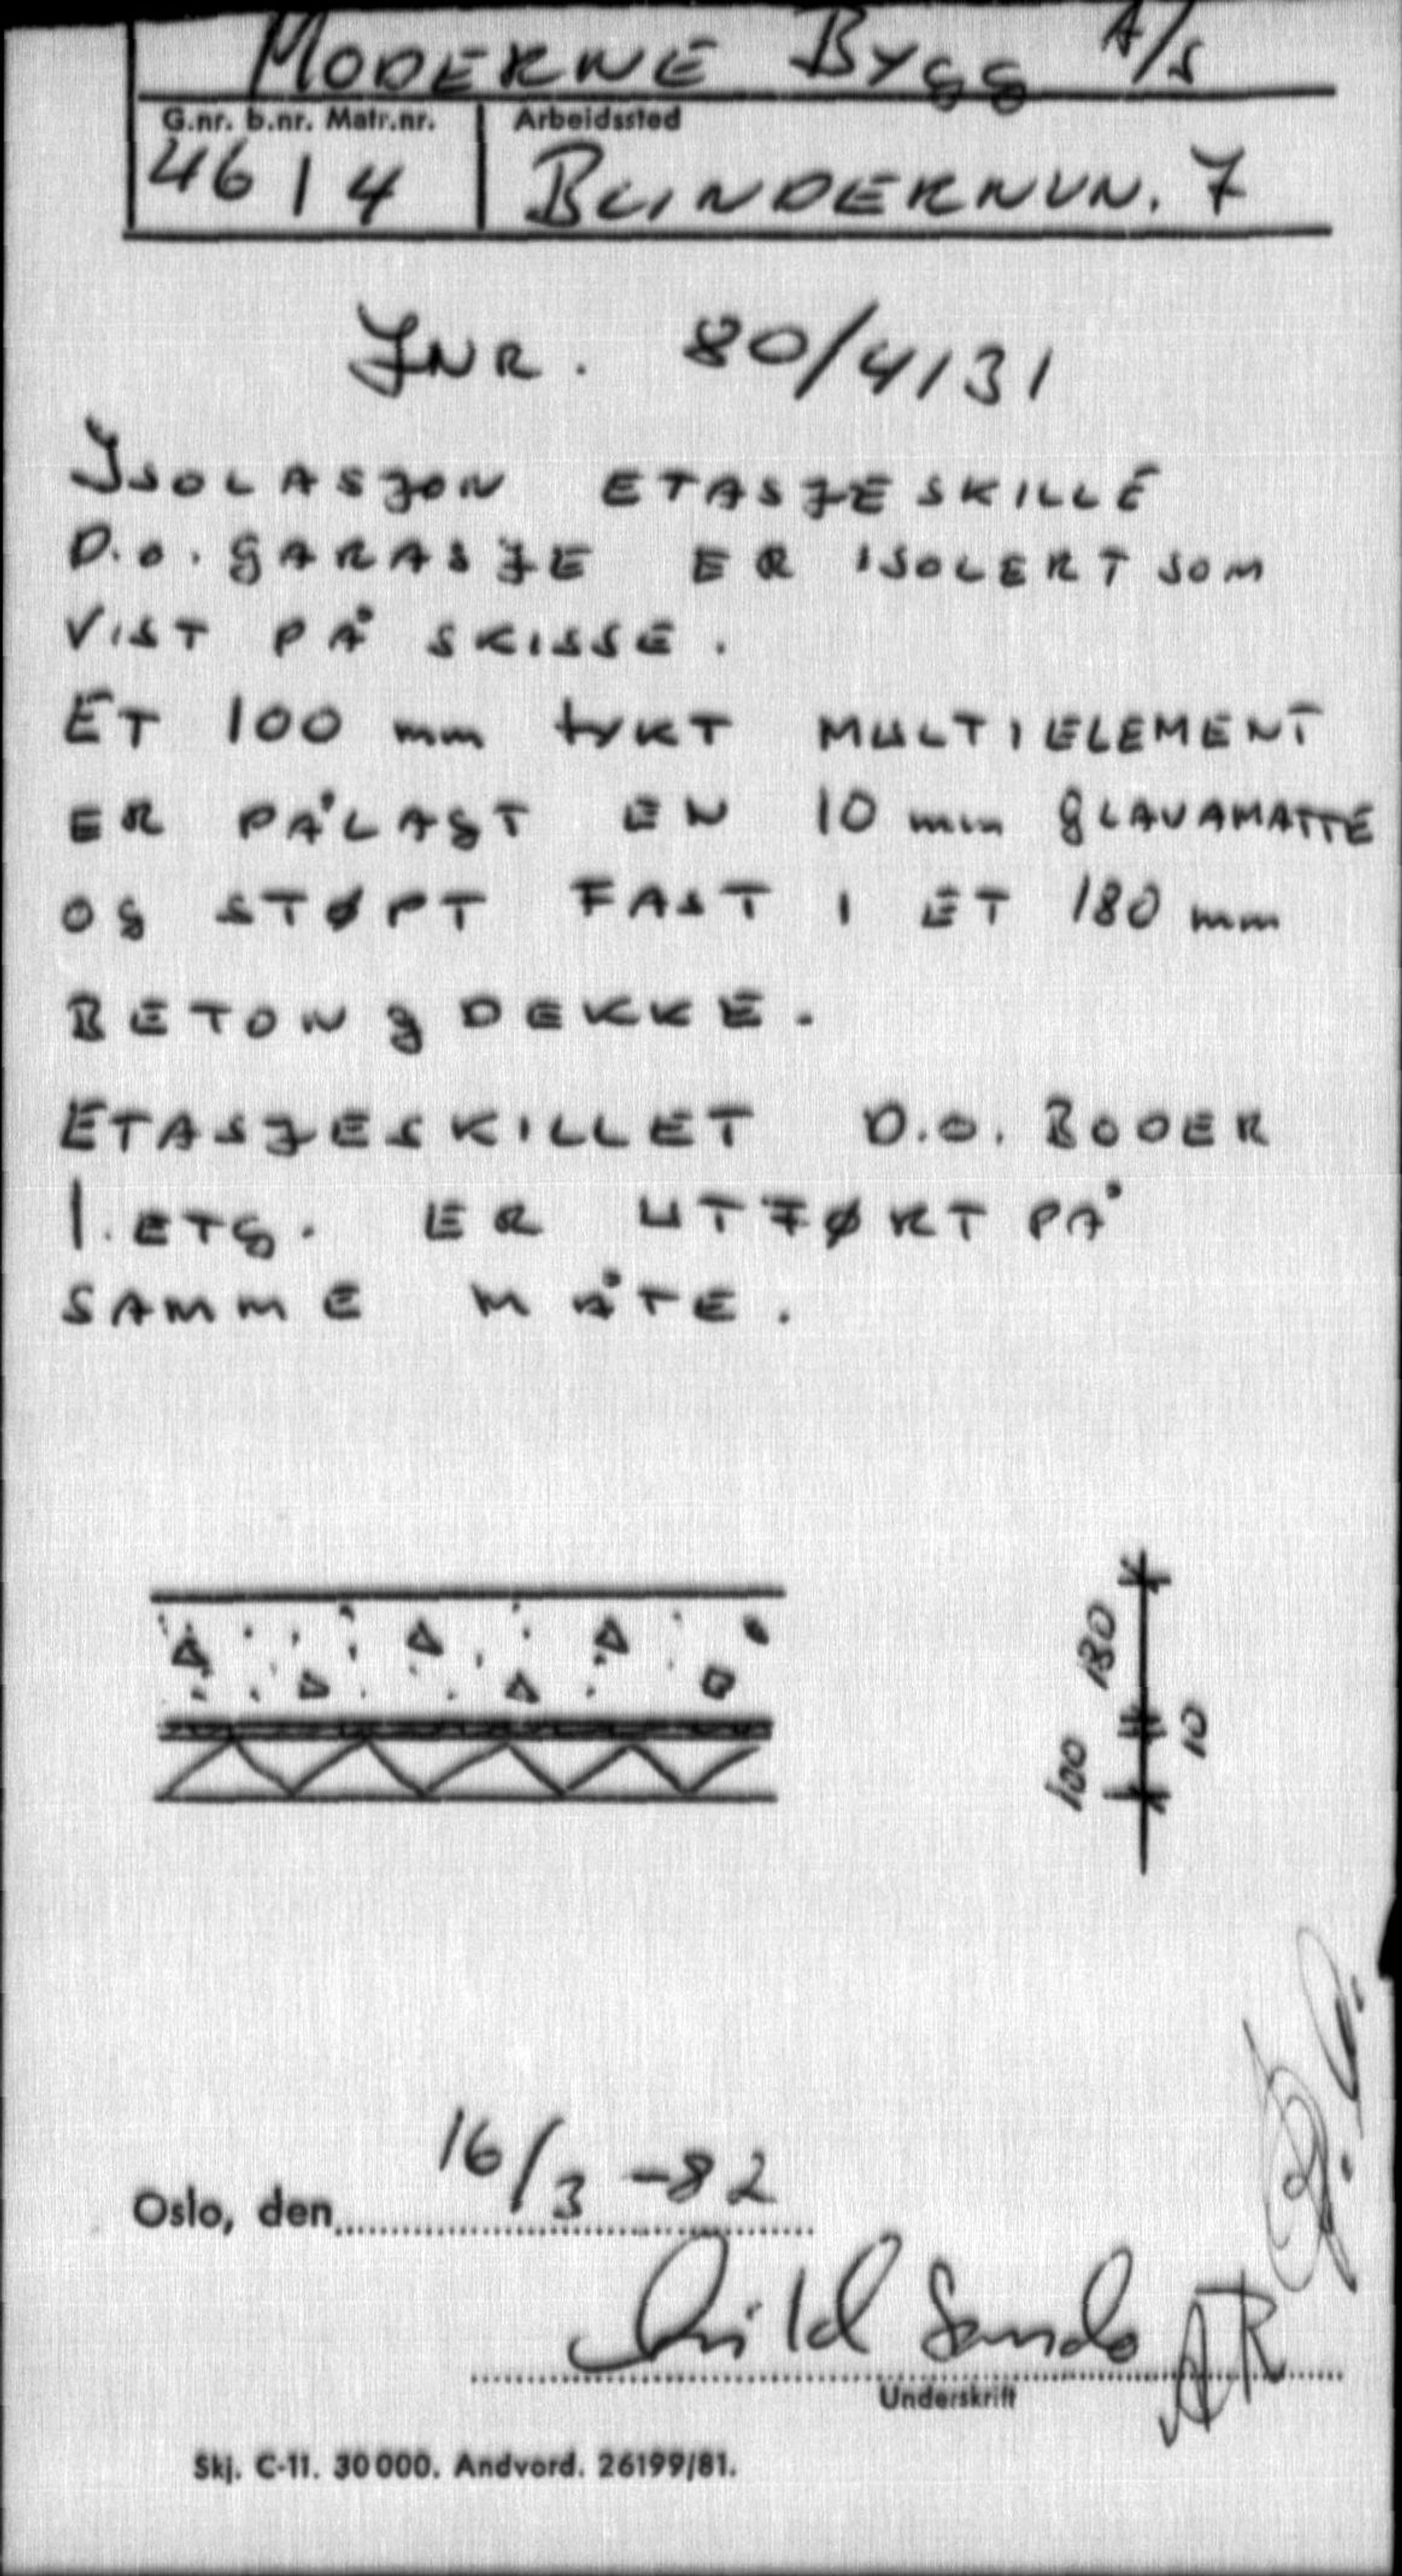 MODERNE BYGG A/S
G.nr. b.nr. Matr.nr. Arbeidssted
46 1 4 BLINDERNVN. 7
JNR. 80/4131
ISOLASJON ETASJESKILLE
D.O. GARASJE ER ISOLERT SOM
VIST PÅ SKISSE.
ET 100 mm tykt MULTIELEMENT
ER PÅLAGT EN 10 mm GLAVAMATTE
OG STØPT FAST I ET 180 mm
BETONGDEKKE.
ETASJESKILLET D.O. BODER
1. ETG. ER UTFØRT PÅ
SAMME MÅTE.
180
10
100
Oslo, den 16/3 -82
Sando
AR
Underskrift
Skj. C-11. 30000. Andvord. 26199/81.